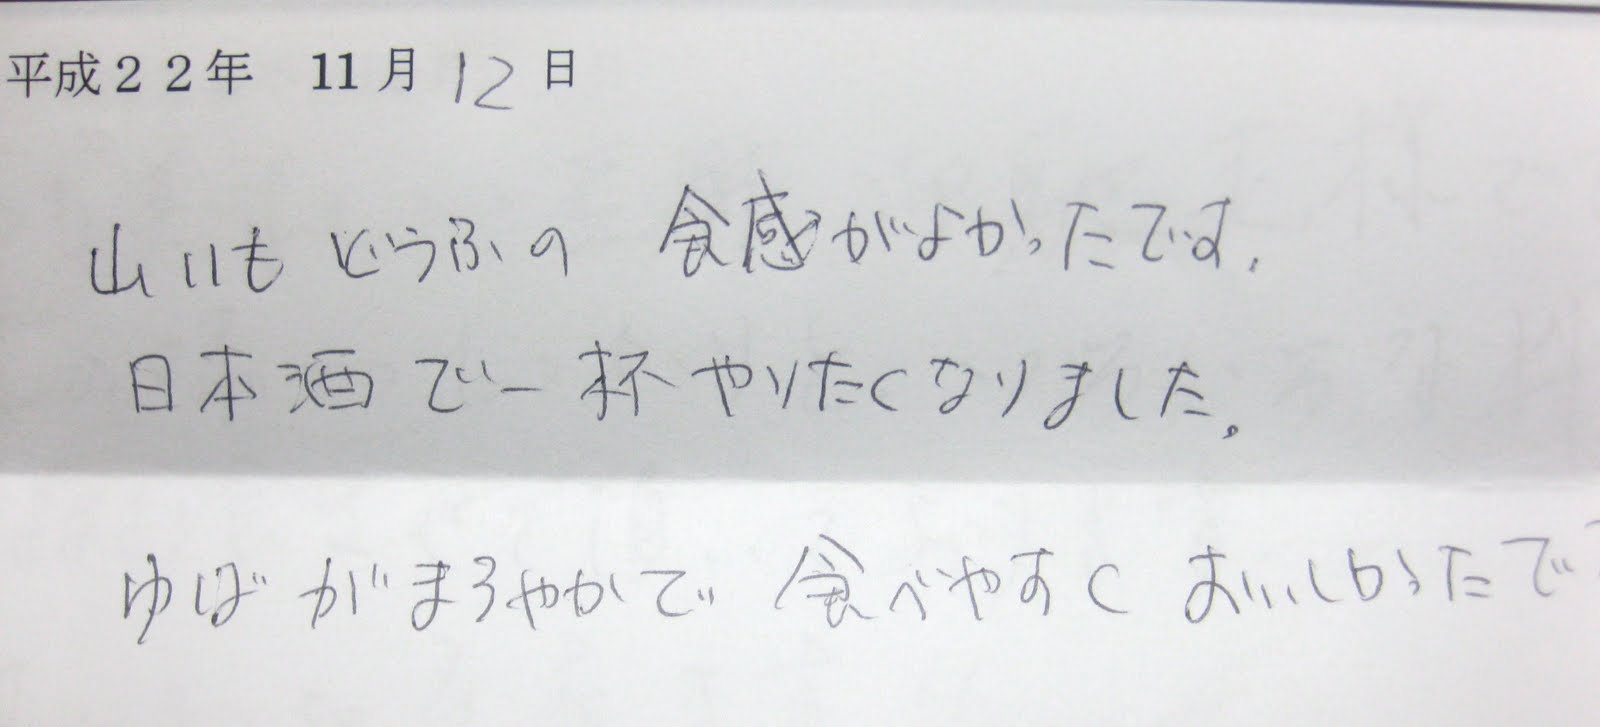 平成２２年　11月12日
山いもどうふの 食感がよかったです。
日本酒で一杯やりたくなりました。
ゆばがまろやかで 食べやすく おいしかったで